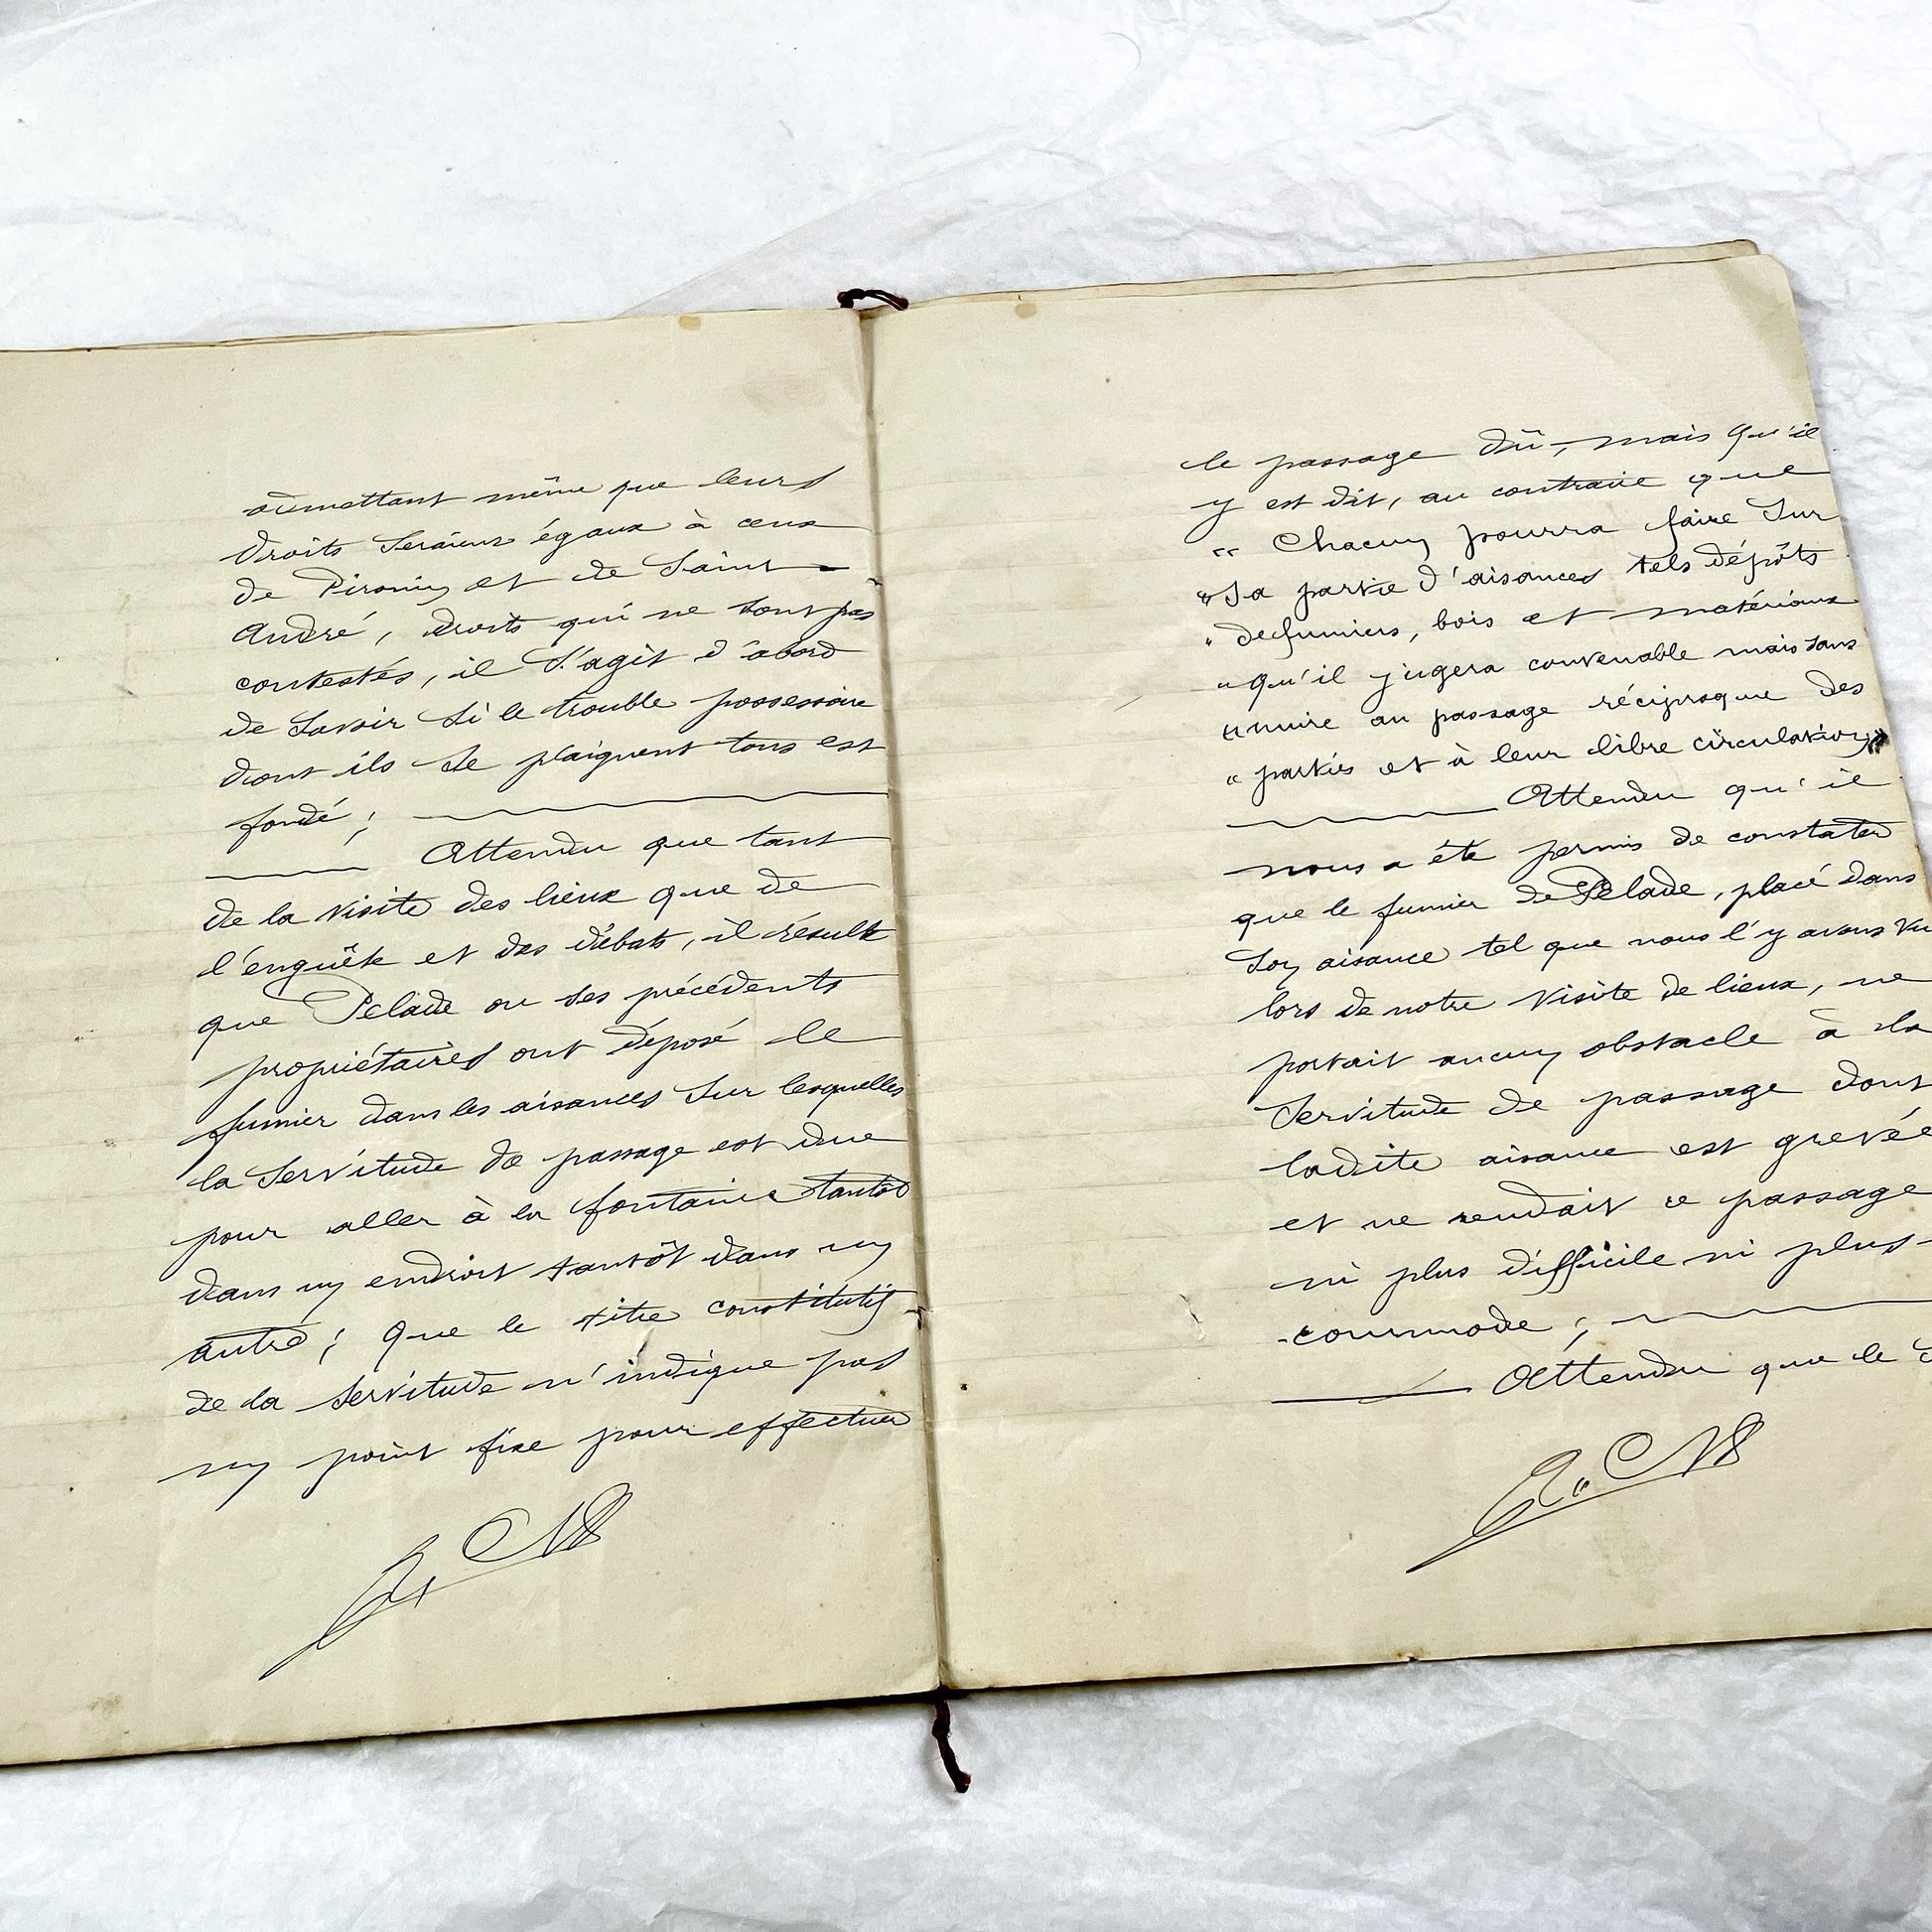 admettant même que leurs
droits seraient égaux à ceux
de Pironin et de Saint
André, droits qui ne sont pas
contestés, il s'agit d'abord
de savoir si le trouble possessoire
dont ils se plaignent tous est
fondé ;
Attendu que tant
de la visite des lieux que de
l'enquête et des débats, il résulte
que Pelade ou ses précédents
propriétaires ont déposé le
fumier dans les aisances sur lesquelles
la servitude de passage est due
pour aller à la fontaine tantôt
dans un endroit tantôt dans un
autre ; que le titre constitutif
de la servitude n'indique pas
un point fixe pour effectuer
le passage dû, mais qu'il
y est dit, au contraire que
" Chacun pourra faire sur
" sa partie d'aisances tels dépôts
" de fumiers, bois et matériaux
" qu'il jugera convenable mais sans
" nuire au passage réciproque des
" parties et à leur libre circulation "
Attendu qu'il
nous a été permis de constater
que le fumier de Pelade, placé dans
son aisance tel que nous l'y avons vu
lors de notre visite de lieux, ne
portait aucun obstacle à la
servitude de passage dont
ladite aisance est grevée
et ne rendait ce passage
ni plus difficile ni plus
commode ;
Attendu que le